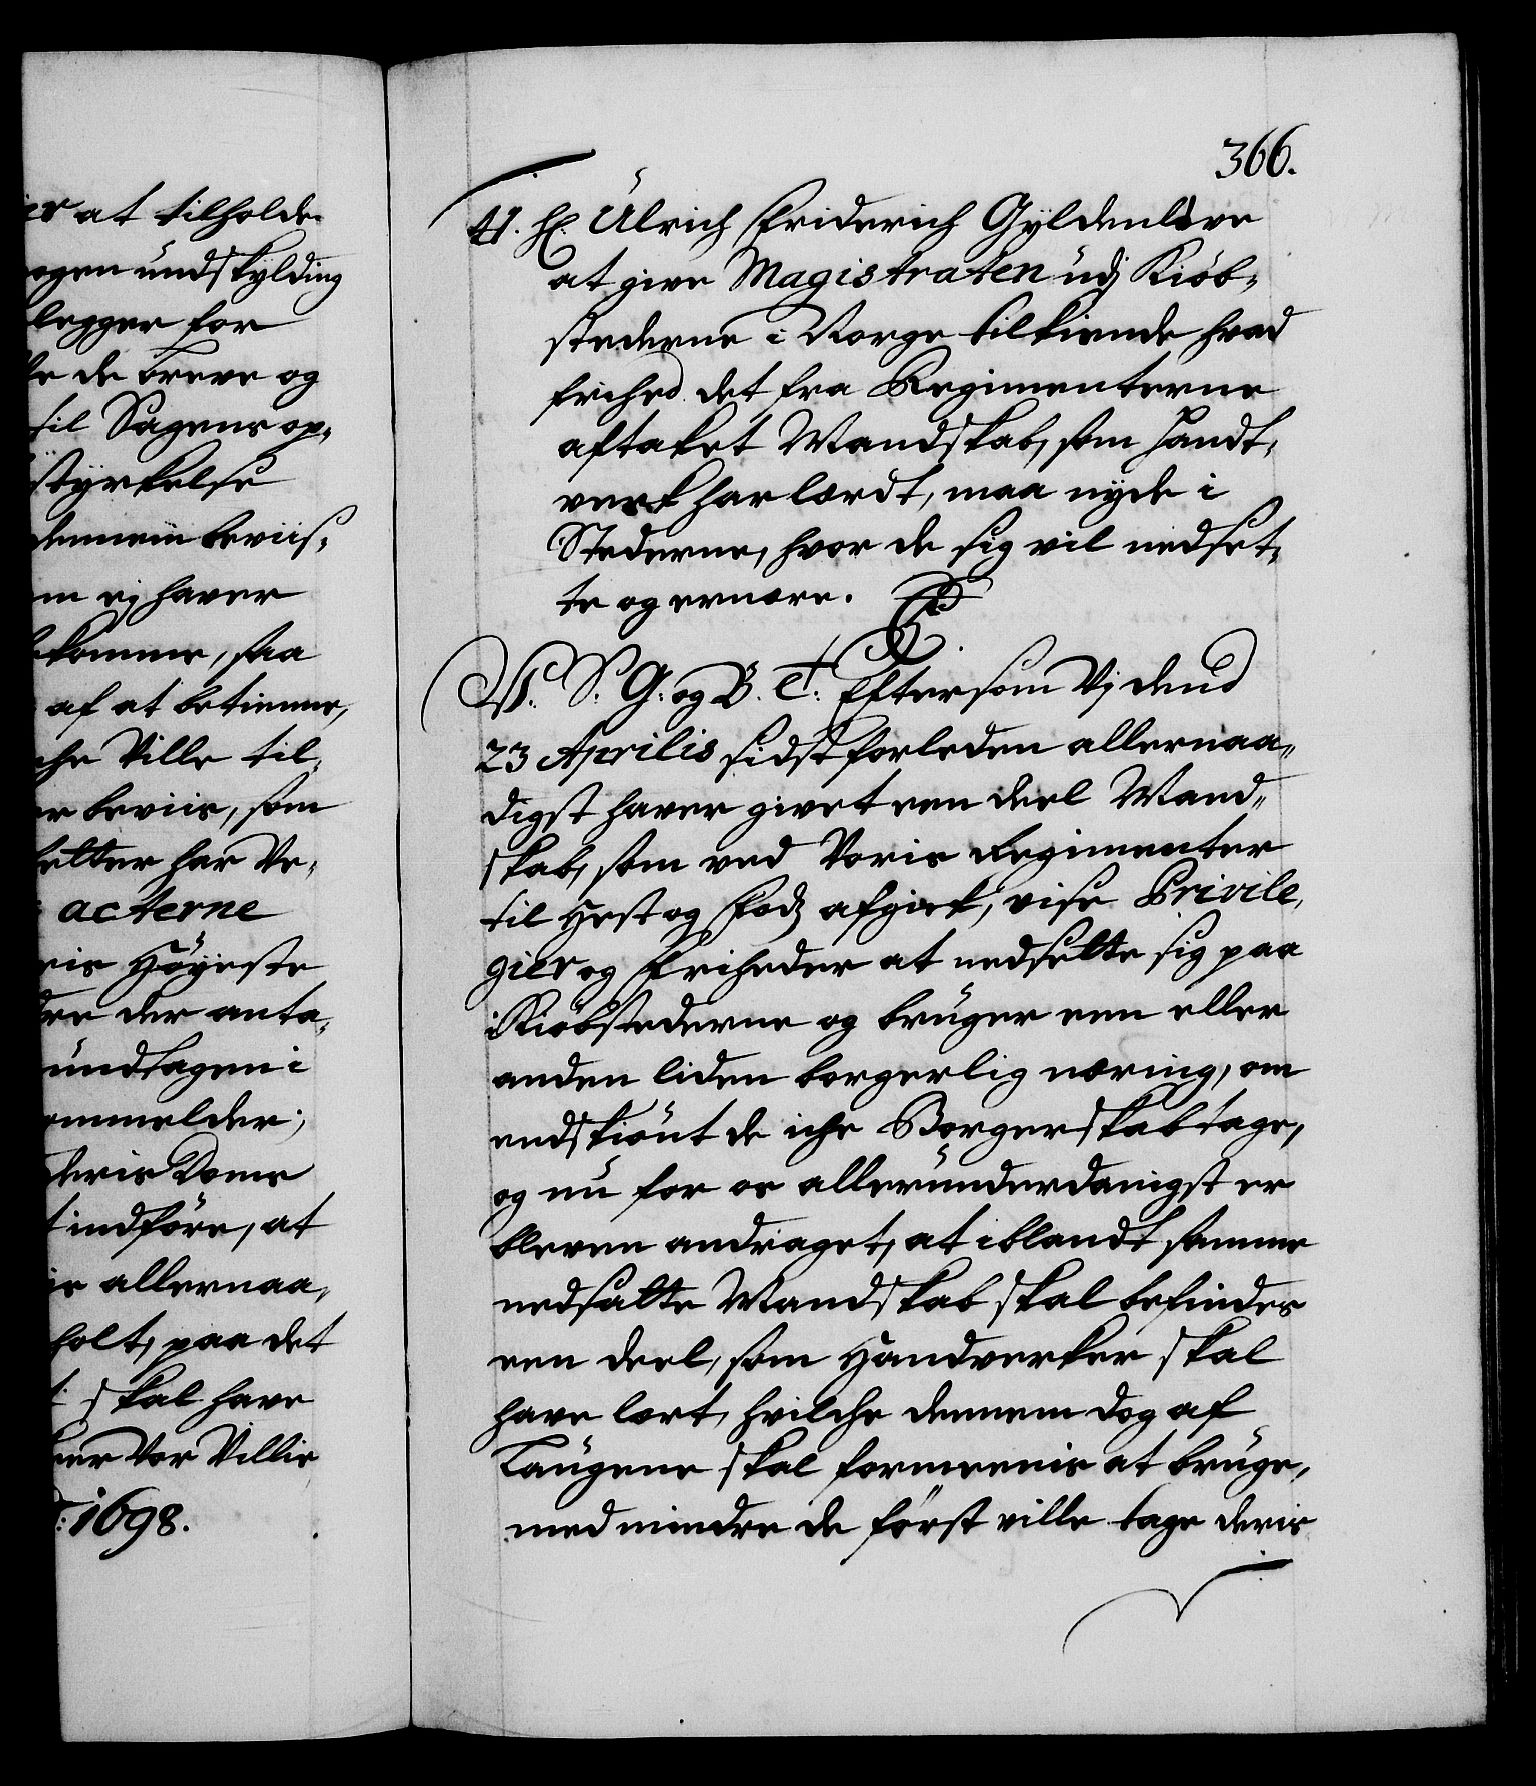 er at tilholde
ogen undskylding
legger for
de breve og
til Sagens op„
styrkelse
dennem beviis„
m ej haver
komme, saa
af at betienne,
che Ville til„
r beviis, som
felter har Ve„
acterne
ris Höyeste
dre der anta„
undtagen i
ommelder;
deris Doms
indföre, at
is allernaa„
holt, paa det
skal have
er Vor Villie
1698.
366.
Ulrich Friderich Gyldenlöve
at give Magistraten udj Kiöb„
stederne i Norge tilkiende hvad
frihed det fra Regimenterne
aftaket Mandskab, som Handt„
verk har lærdt, maa nyde i
Stederne, hvor de sig vil nedset„
te og ernære.
S. G. og B. T. Eftersom Vj dend
23 Aprilis sidst forleden allernaa„
digst haver givet een deel Mand„
skab, som ved Voris Regimenter
til Hest og Fodz afgiek, visse Privile„
gier og Friheder at nedsette sig paa
i Kiöbstederne og bruger een eller
anden liden borgerlig næring, om
endskiönt de iche Borgerskab tage,
og nu for os allerunderdanigst er
bleven andraget, at iblandt samme
nedsatte Mandskab skal befindes
een deel, som Handverker skal
have lært, hvilche dennem dog af
Laugene skal formeenis at bruge,
med mindre de först ville tage deris